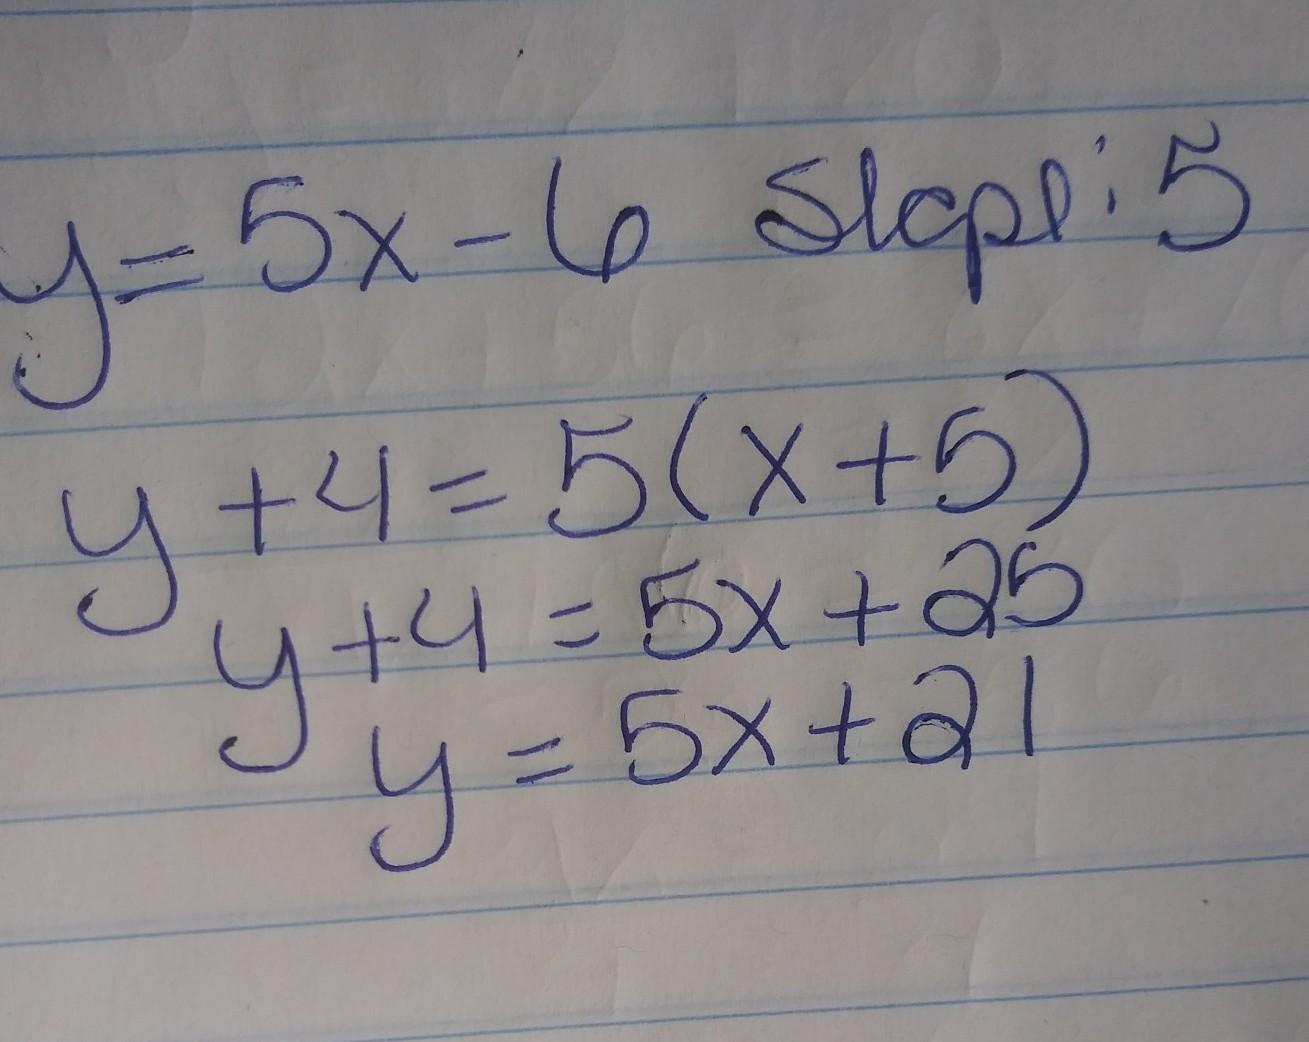 y = 5x - 6 Slope: 5
y + 4 = 5(x + 5)
y + 4 = 5x + 25
y = 5x + 21